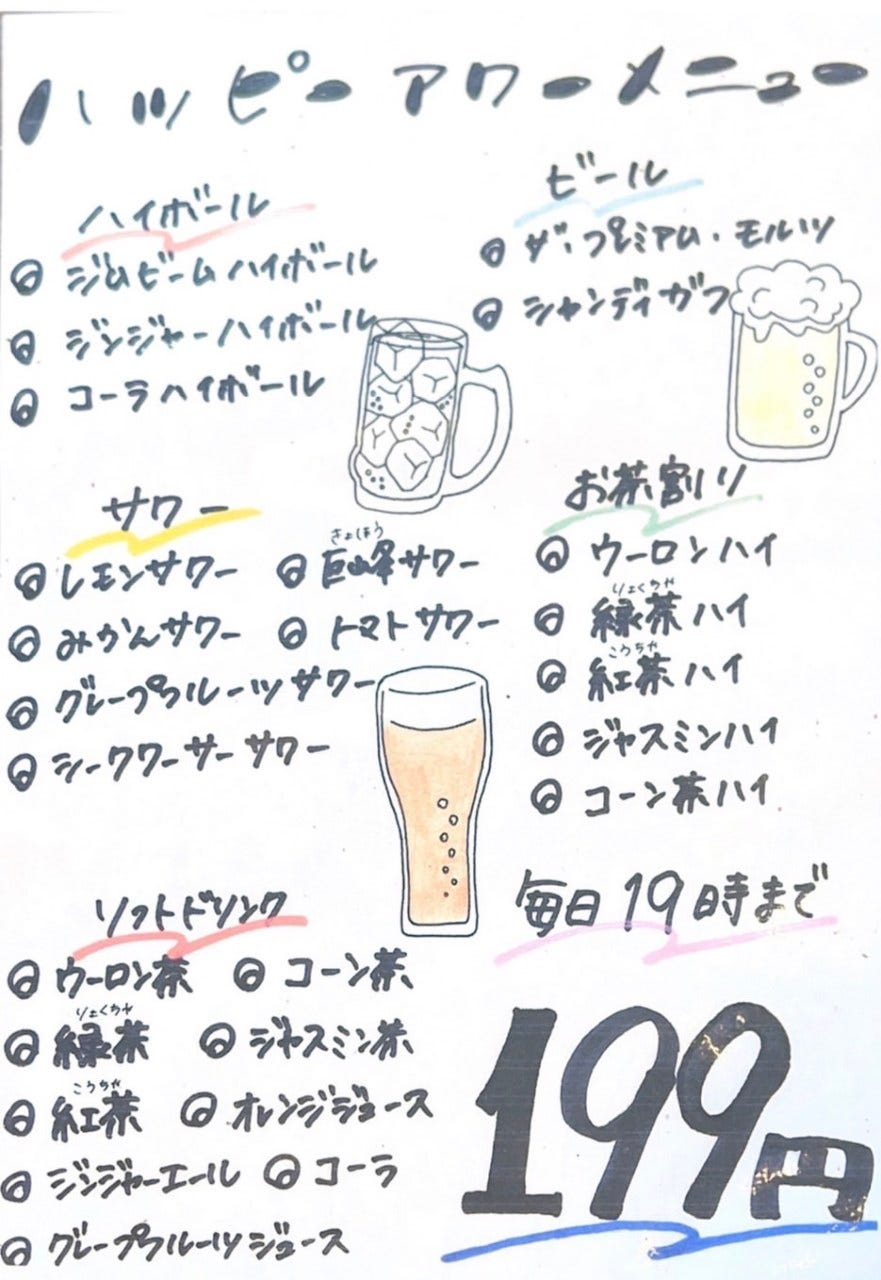 ハッピーアワーメニュー
ハイボール
◎ ジムビームハイボール
◎ ジンジャーハイボール
◎ コーラハイボール
ビール
◎ ザ・プレミアム・モルツ
◎ シャンディガフ
サワー
◎ レモンサワー ◎ 巨峰サワー
きょほう
◎ みかんサワー ◎ トマトサワー
◎ グレープフルーツサワー
◎ シークワーサーサワー
お茶割り
◎ ウーロンハイ
りょくちゃ
◎ 緑茶ハイ
こうちゃ
◎ 紅茶ハイ
◎ ジャスミンハイ
◎ コーン茶ハイ
ソフトドリンク
◎ ウーロン茶 ◎ コーン茶
りょくちゃ
◎ 緑茶 ◎ ジャスミン茶
こうちゃ
◎ 紅茶 ◎ オレンジジュース
◎ ジンジャーエール ◎ コーラ
◎ グレープフルーツジュース
毎日19時まで
199円